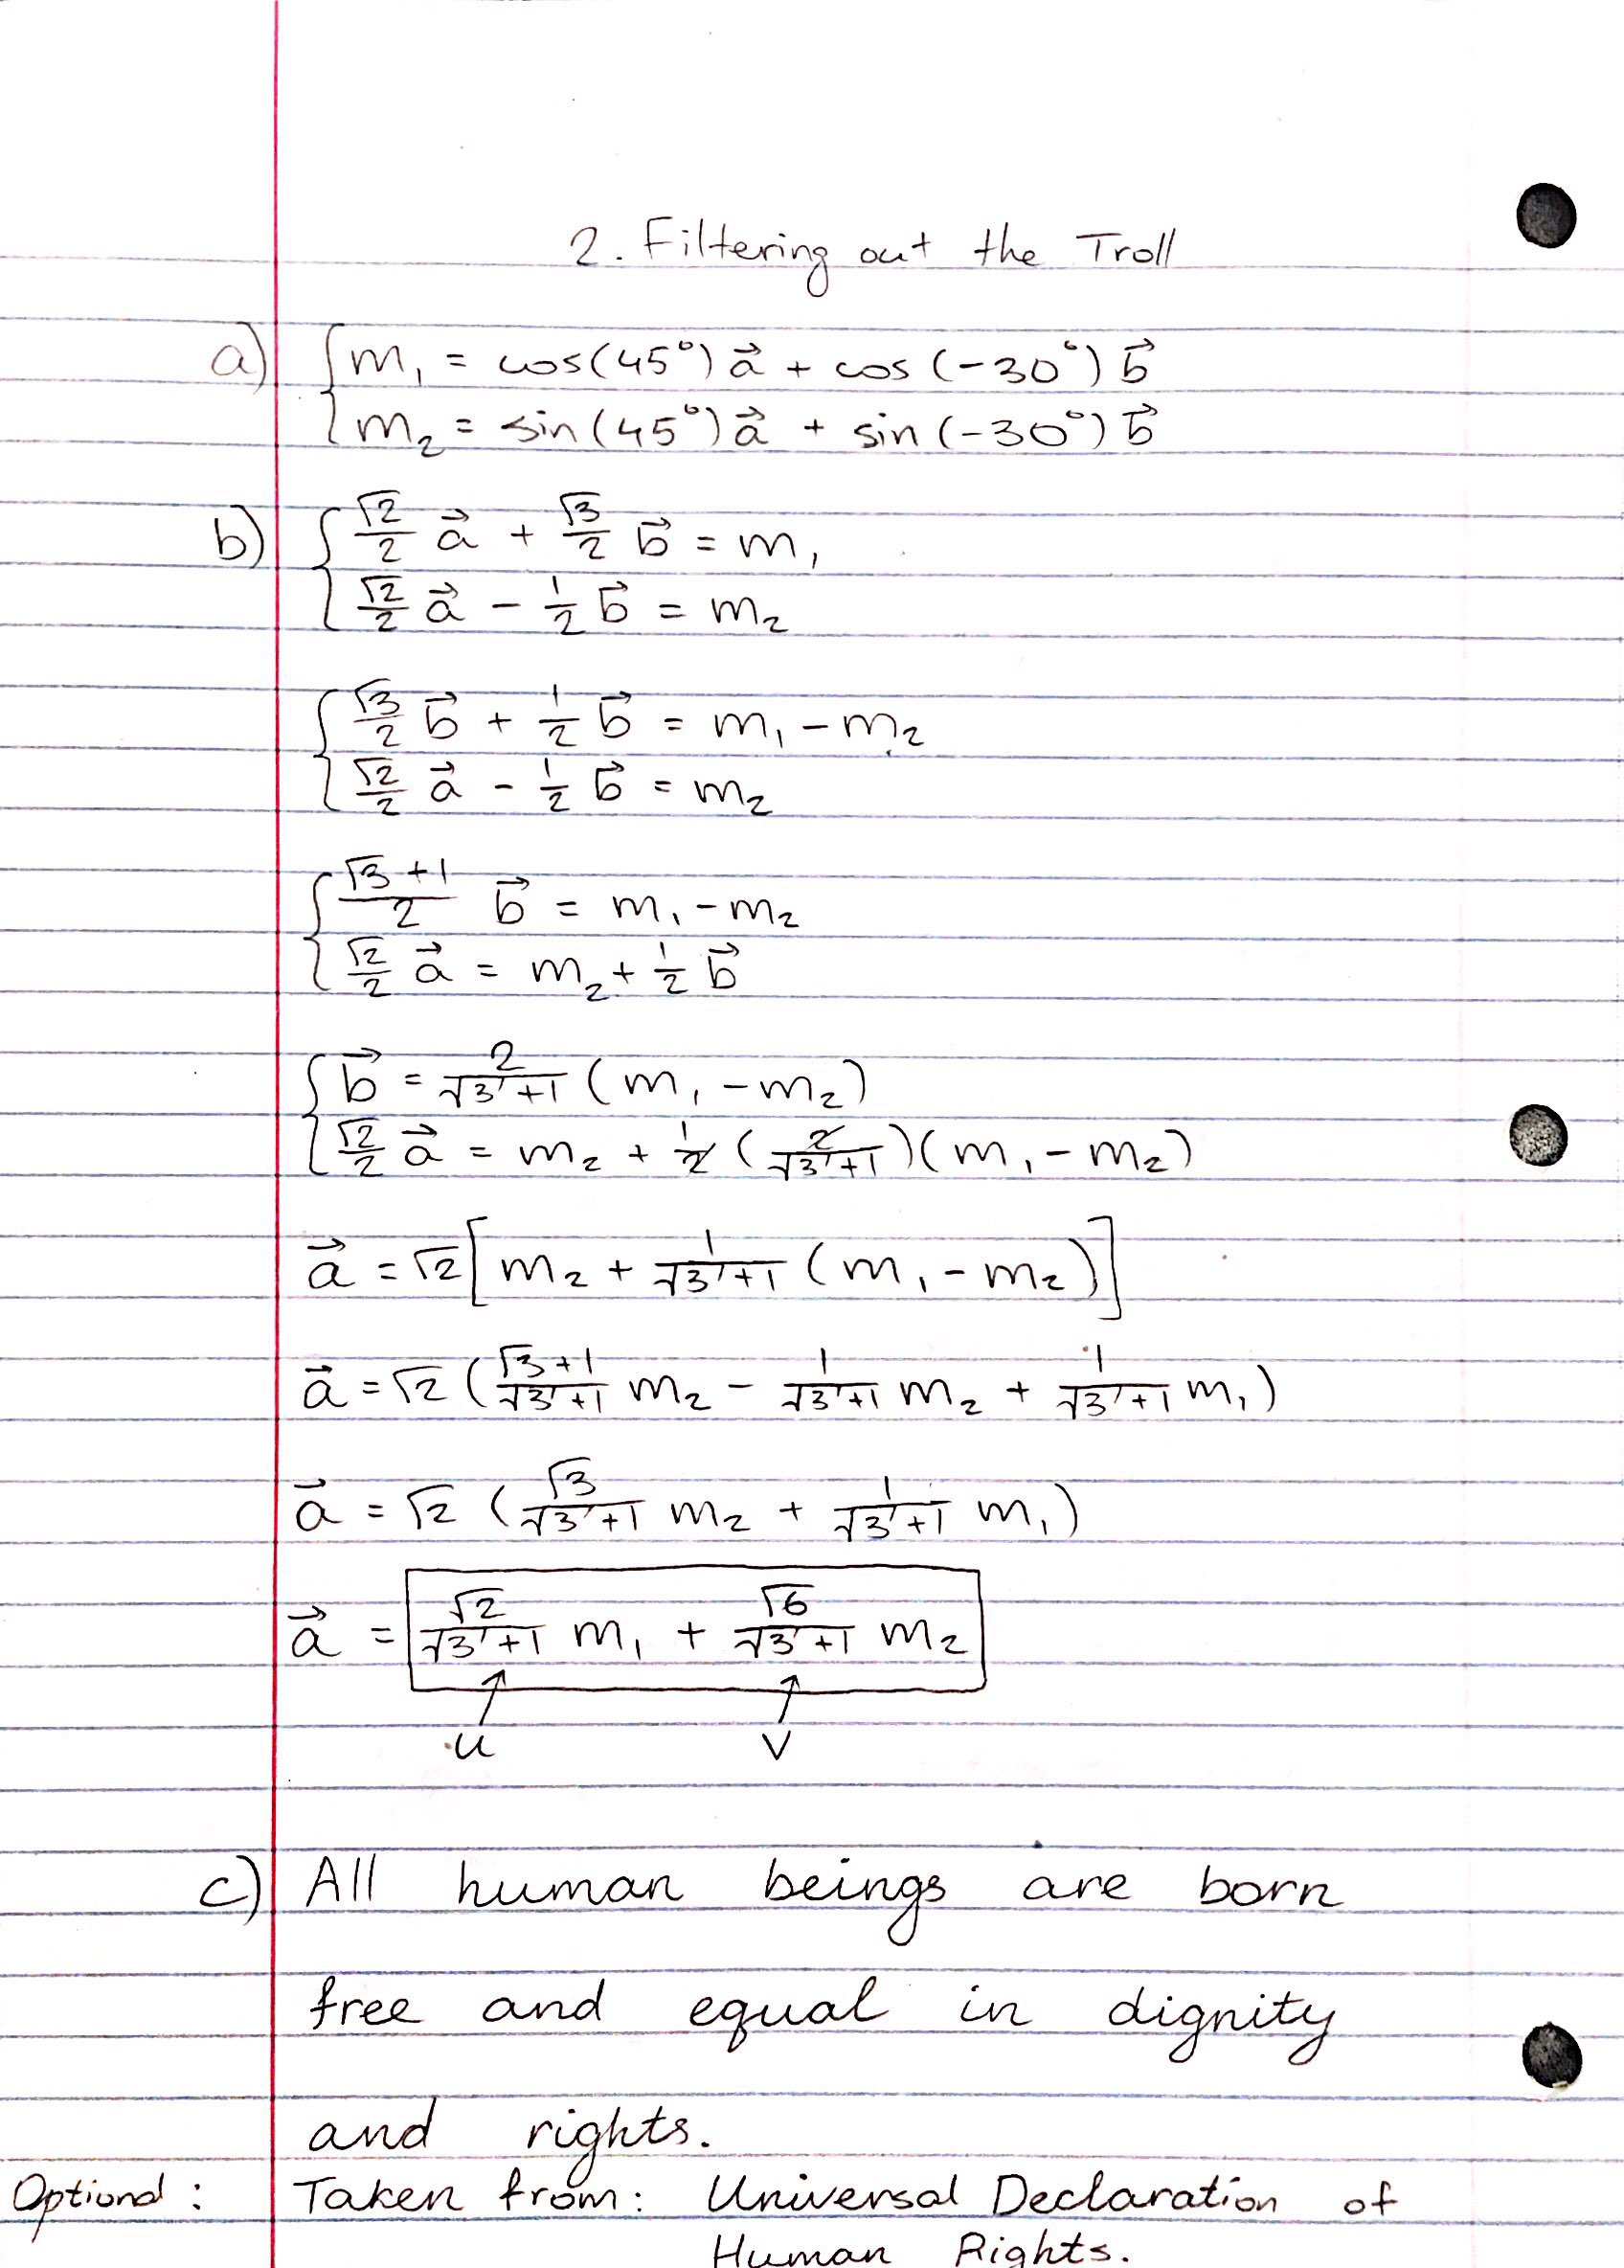 2. Filtering out the Troll
a) { m₁ = cos(45°) a⃗ + cos(-30°) b⃗
m₂ = sin(45°) a⃗ + sin(-30°) b⃗
b) { √2/2 a⃗ + √3/2 b⃗ = m₁
√2/2 a⃗ - 1/2 b⃗ = m₂
{ √3/2 b⃗ + 1/2 b⃗ = m₁ - m₂
√2/2 a⃗ - 1/2 b⃗ = m₂
{ (√3+1)/2 b⃗ = m₁ - m₂
√2/2 a⃗ = m₂ + 1/2 b⃗
{ b⃗ = 2/(√3+1) (m₁ - m₂)
√2/2 a⃗ = m₂ + 1/2 (2/(√3+1))(m₁ - m₂)
a⃗ = √2 [m₂ + 1/(√3+1) (m₁ - m₂)]
a⃗ = √2 ((√3+1)/(√3+1) m₂ - 1/(√3+1) m₂ + 1/(√3+1) m₁)
a⃗ = √2 (√3/(√3+1) m₂ + 1/(√3+1) m₁)
a⃗ = √2/(√3+1) m₁ + √6/(√3+1) m₂
u v
c) All human beings are born
free and equal in dignity
and rights.
Optional: Taken from: Universal Declaration of
Human Rights.